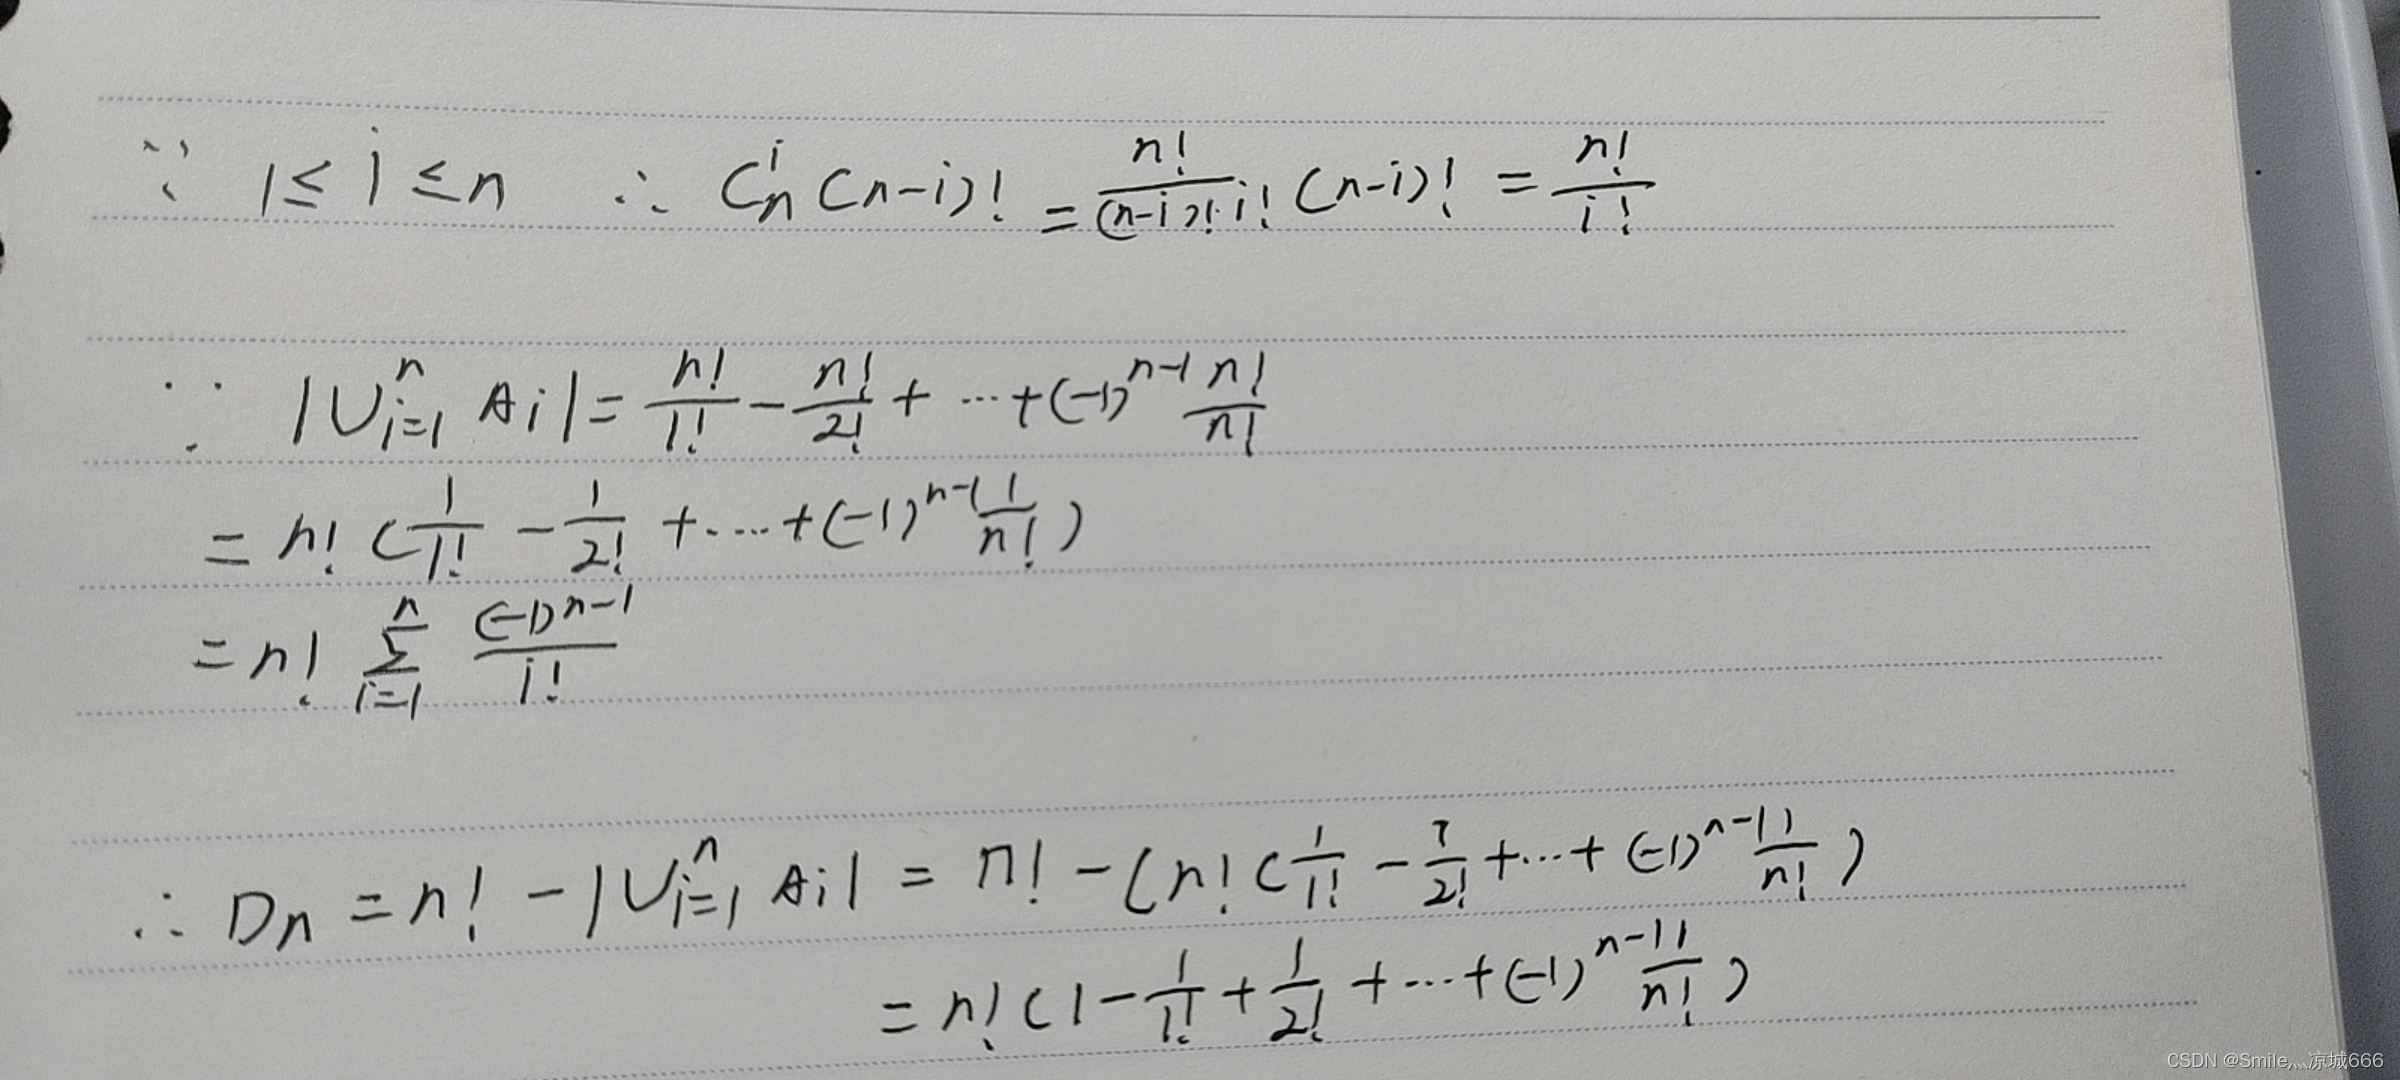 ∵ 1≤i≤n ∴ C_n^i (n-i)! = \frac{n!}{(n-i)!·i!} (n-i)! = \frac{n!}{i!}
∵ |∪_{i=1}^{n} Ai| = \frac{n!}{1!} - \frac{n!}{2!} + ··· + (-1)^{n-1} \frac{n!}{n!}
= n! (\frac{1}{1!} - \frac{1}{2!} + ···· + (-1)^{n-1} \frac{1}{n!})
= n! \sum_{i=1}^{n} \frac{(-1)^{n-1}}{i!}
∴ Dn = n! - |∪_{i=1}^{n} Ai| = n! - (n! (\frac{1}{1!} - \frac{1}{2!} + ··· + (-1)^{n-1} \frac{1}{n!})
= n! (1 - \frac{1}{1!} + \frac{1}{2!} + ··· + (-1)^{n-1} \frac{1}{n!})
CSDN @Smile灬凉城666